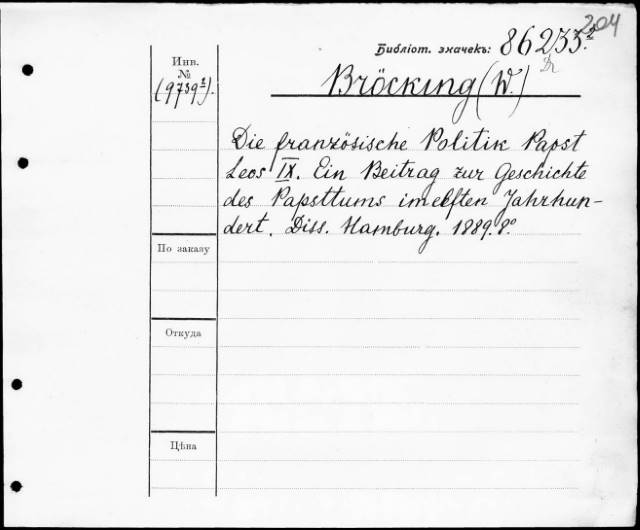 204
Библіот. значекъ: 86233²
Инв.
№
(9739²).
Bröcking (W.)
Die französische Politik Papst
Leos IX. Ein Beitrag zur Geschichte
des Papsttums im elften Jahrhun-
dert. Diss. Hamburg. 1889. 8º
По заказу
Откуда
Цѣна